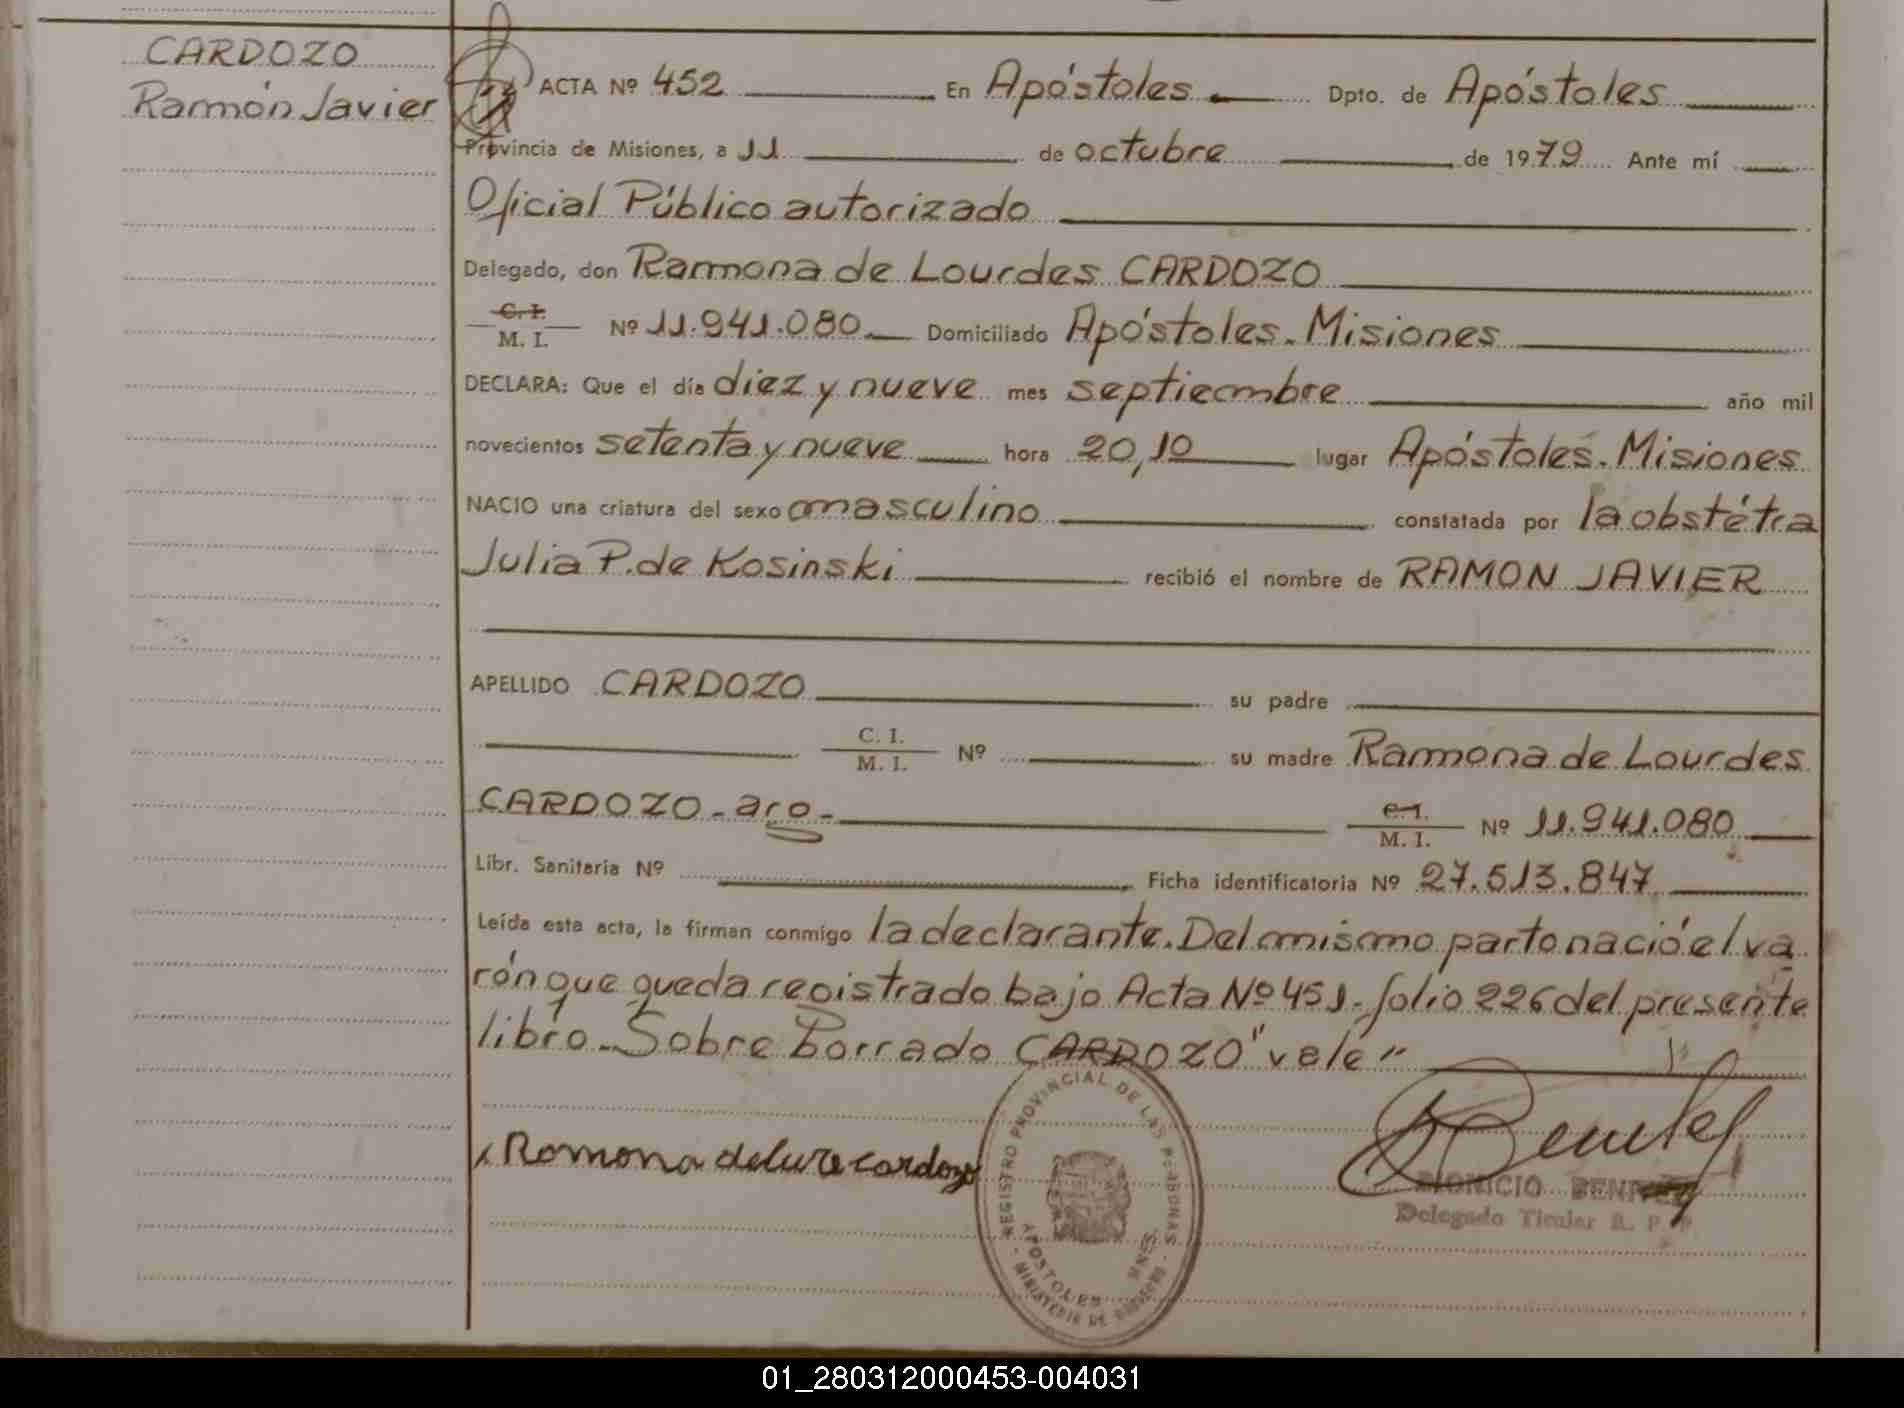 CARDOZO
Ramón Javier
ACTA Nº 452 En Apóstoles Dpto. de Apóstoles
Provincia de Misiones, a 11 de octubre de 1979 Ante mí
Oficial Público autorizado
Delegado, don Ramona de Lourdes CARDOZO
C. I.
M. I. Nº 11.941.080 Domiciliado Apóstoles. Misiones
DECLARA: Que el día diez y nueve mes septiembre año mil
novecientos setenta y nueve hora 20,10 lugar Apóstoles. Misiones
NACIO una criatura del sexo masculino constatada por la obstétra
Julia P. de Kosinski recibió el nombre de RAMON JAVIER
APELLIDO CARDOZO su padre
C. I.
M. I. Nº su madre Ramona de Lourdes
CARDOZO - aro - C. I.
M. I. Nº 11.941.080
Libr. Sanitaria Nº Ficha identificatoria Nº 27.513.847
Leída esta acta, la firman conmigo la declarante. Del mismo parto nació el va
rón que queda registrado bajo Acta Nº 451. folio 226 del presente
libro. Sobre Borrado CARDOZO "vale"
Romona cardozo
REGISTRO PROVINCIAL DE LAS PERSONAS
APOSTOLES MNES.
MINISTERIO DE GOBIERNO
DIONICIO BENITEZ
Delegado Titular R. P. P.
01_280312000453-004031